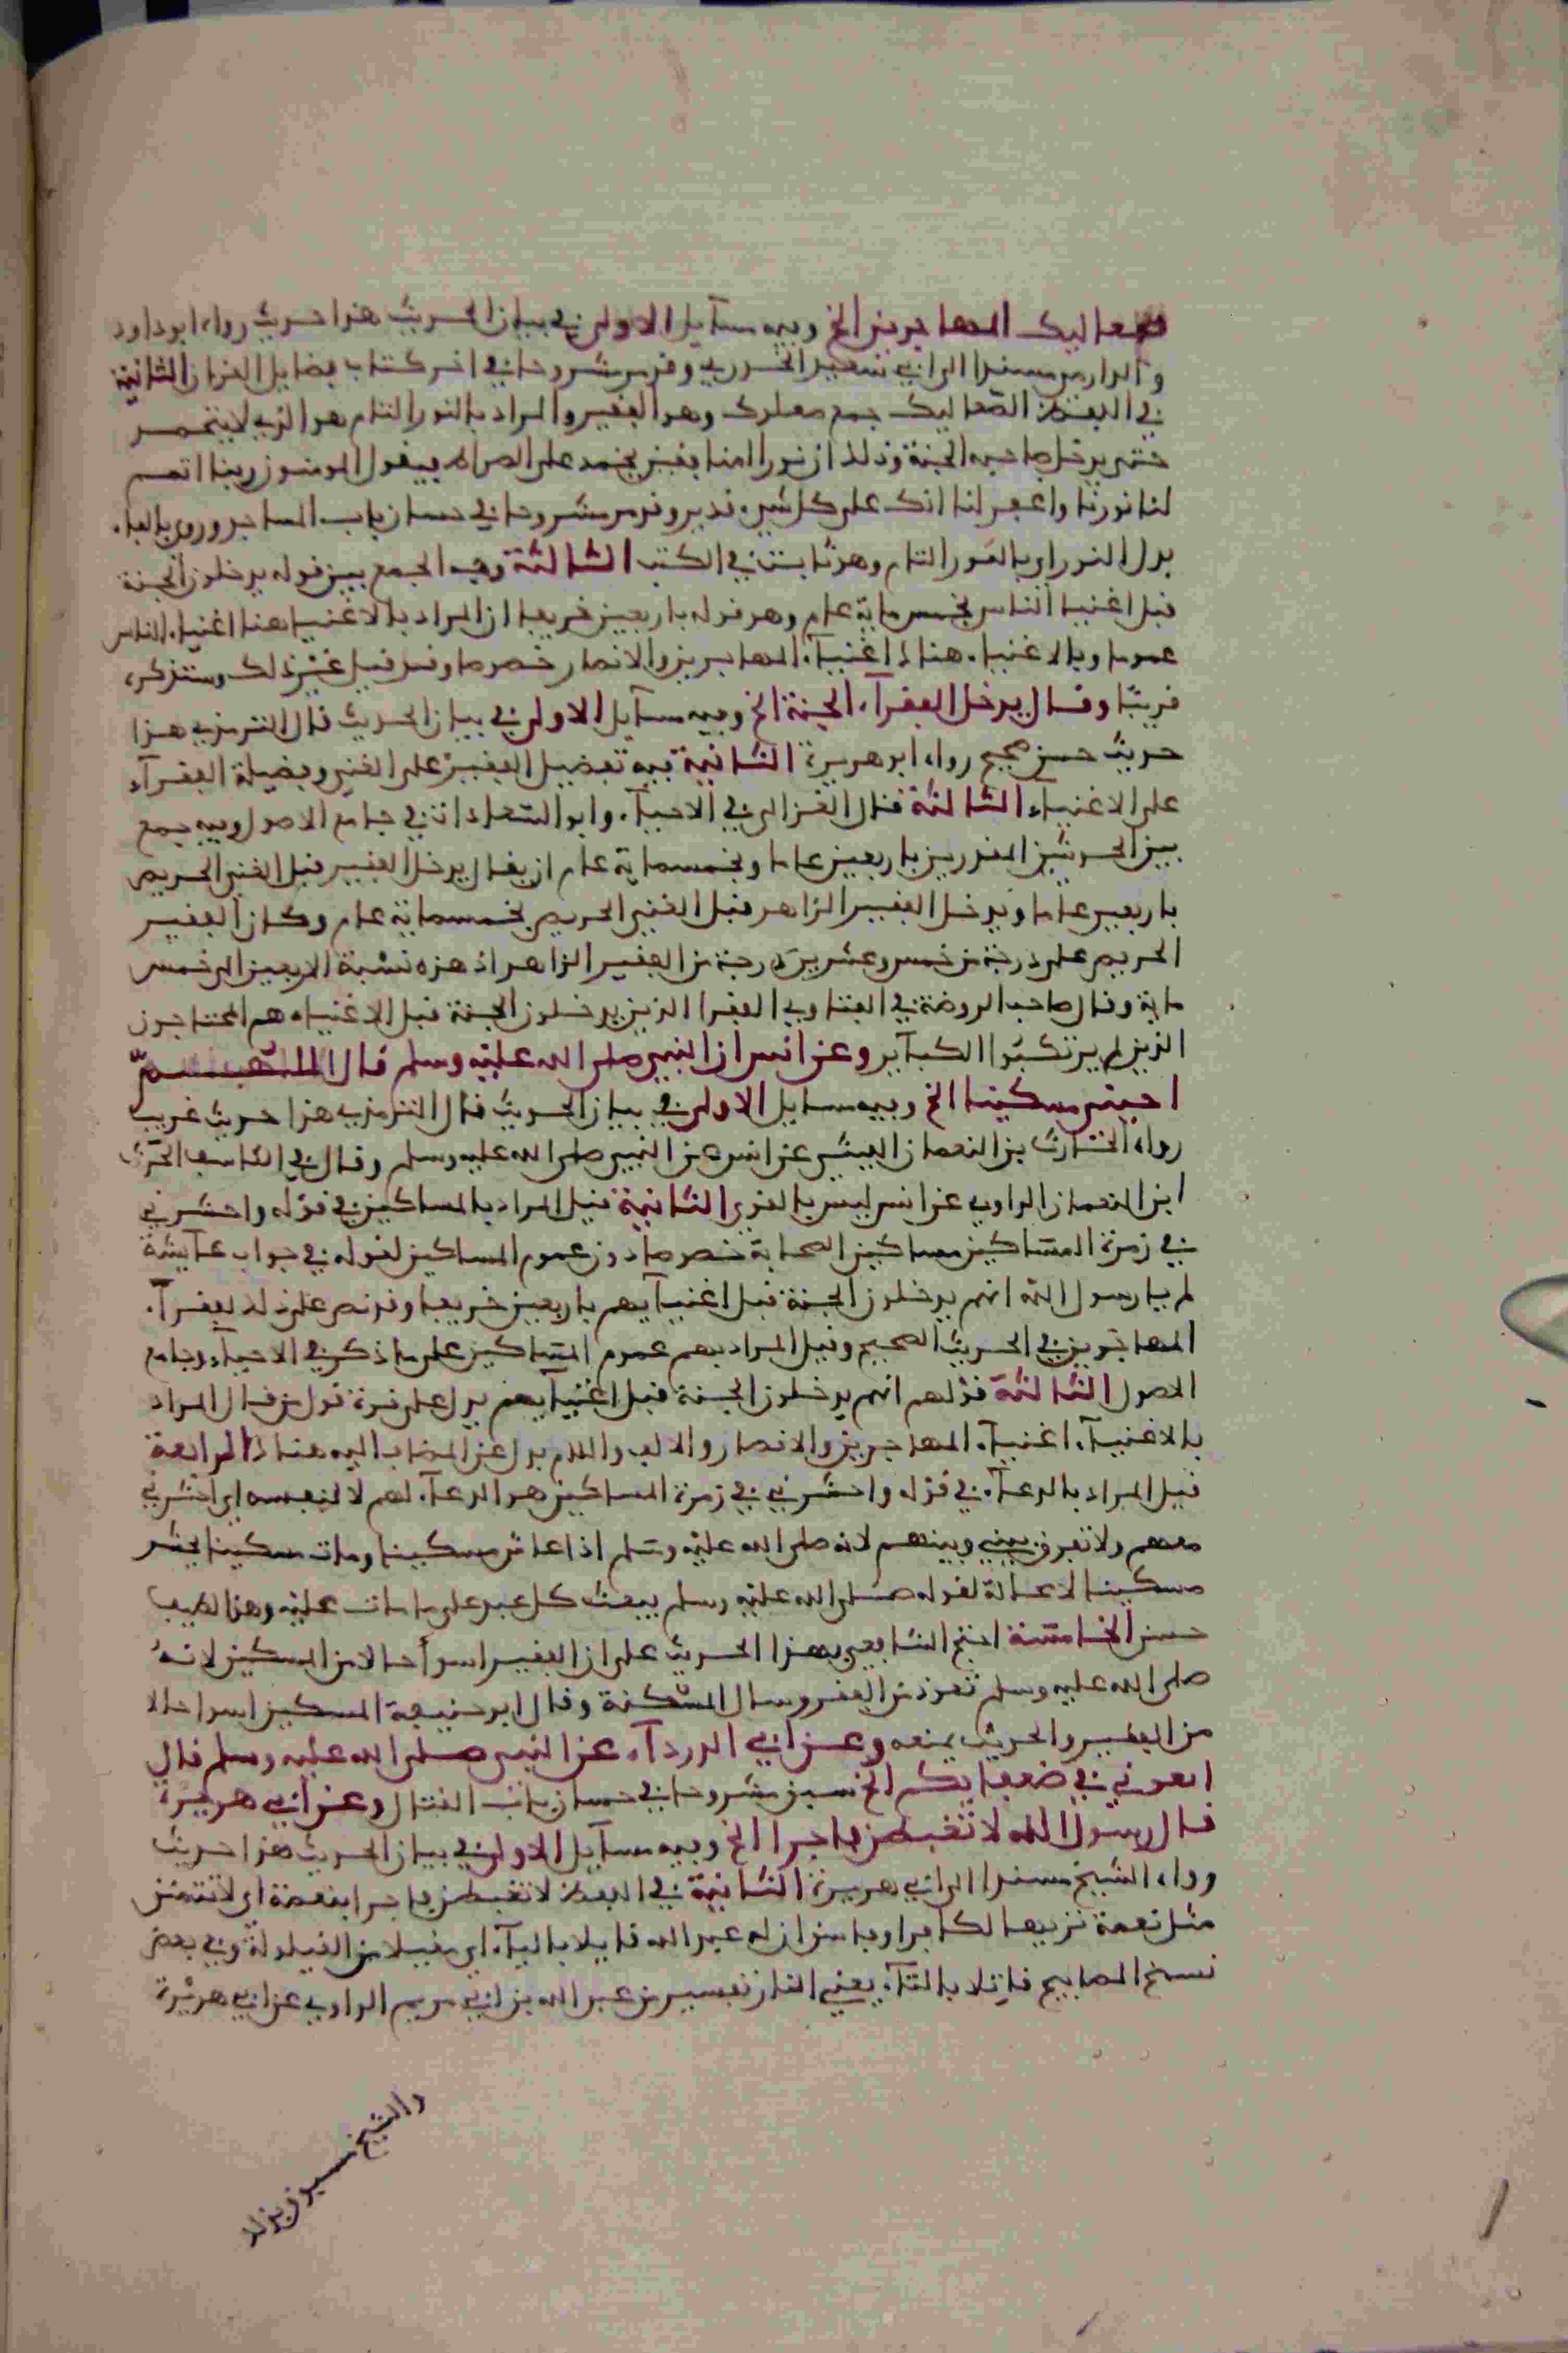 صعاليك المهاجرين الخ وفيه مسآيل الاولى في بيان الحديث هذا حديث رواه ابو داود
والدارمي مسندا الى ابي سعيد الخدري وقد مر مشروحا في اخر كتاب فضايل القران الثانية
في اللفظ الصعاليك جمع صعلوك وهو الفقير والمراد بالنور التام هو الذي لا ينحصر
حتى يدخل صاحبه الجنة وذلك ان نور المنافقين يخمد على الصراط فيقول المومنون ربنا اتمم
لنا نورنا واغفر لنا انك على كل شيء قدير وقد مر مشروحا في حسان باب المساجد وروي بالفاء
بدل النور اي بالفوز التام وهو ثابت في الكتب الثالثة وجه الجمع بين قوله يدخلون الجنة
قبل اغنيا الناس بخمس ماية عام وهو قوله باربعين خريفا ان المراد بالاغنيا هنا اغنياء الناس
عموما وبالاغنياء هناك اغنيآء المهاجرين والانصار خصوصا وقد قيل غير ذلك وستذكره
قريبا وقال يدخل الفقرآء الجنة الخ وفيه مسآيل الاولى في بيان الحديث قال الترمذي هذا
حديث حسن صحيح رواه ابو هريرة الثانية فيه تفضيل الفقير على الغني وفضيلة الفقرآء
على الاغنياء الثالثة قال الغزالي في الاحيآء وابو السعادات في جامع الاصول وفيه جمع
بين الحديثين المقدرين باربعين عاما وبخمسماية عام ان يقال يدخل الفقير قبل الغني الحريص
باربعين عاما ويدخل الفقير الزاهد قبل الغني الحريص بخمسماية عام وكان الفقير
الحريص على درجة من خمس وعشرين درجة من الفقير الزاهد اذ هذه نسبة الاربعين الى خمس
ماية وقال صاحب الروضة في الفتاوي الفقرا الذين يدخلون الجنة قبل الاغنياء هم المحتاجون
الذين لم يرتكبوا الكبآير وعن انس ان النبي صلى الله عليه وسلم قال اللهم
احيني مسكينا الخ وفيه مسايل الاولى في بيان الحديث قال الترمذي هذا حديث غريب
رواه الحارث بن النعمان الليثي عن انس عن النبي صلى الله عليه وسلم وقال في الكاشف الحرث
ابن النعمان الراوي عن انس ليس بالقوي الثانية قيل المراد بالمساكين في قوله واحشرني
في زمرة المساكين مساكين الصحابة خصوصا دون عموم المساكين لقوله في جواب عآيشة
لم يا رسول الله انهم يدخلون الجنة قبل اغنيآيهم باربعين خريفا وقد نص على ذلك لفقرآء
المهاجرين في الحديث الصحيح وقيل المراد بهم عموم المساكين على ما ذكر في الاحيآء وجامع
الاصول الثالثة قولهم انهم يدخلون الجنة قبل اغنيآيهم يدل على قوة قول من قال المراد
بالاغنيآء اغنيآء المهاجرين والانصار والالف واللام بدل عن المضاف اليه هناك الرابعة
قيل المراد بالدعآء في قوله واحشرني في زمرة المساكين هو الدعآء لهم لا لنفسه اي احشرني
معهم ولا تفرق بيني وبينهم لانه صلى الله عليه وسلم اذا عاش مسكينا ومات مسكينا يحشر
مسكينا لا محالة لقوله صلى الله عليه وسلم يبعث كل عبد على ما مات عليه وهذا لطيف
حسن الخامسة احتج الشافعي بهذا الحديث على ان الفقير اسوأ حالا من المسكين لانه
صلى الله عليه وسلم تعوذ من الفقر وسال المسكنة وقال ابو حنيفة المسكين اسوا حالا
من الفقير والحديث يمنعه وعن ابي الدردآء عن النبي صلى الله عليه وسلم قال
ابغوني في ضعفايكم الخ سبق مشروحا في حسان باب القتال وعن ابي هريرة
قال رسول الله لا تغبطن فاجرا الخ وفيه مسآيل الاولى في بيان الحديث هذا حديث
رواه الشيخ مسندا الى ابي هريرة الثانية في اللفظ لا تغبطن فاجرا بنعمة اي لا تتمنن
مثل نعمة تريها لكافر او فاسق ان له عبد الله قايلا باليآء اي مقيلا من القيلولة وفي بعض
نسخ المصابيح قاتلا بالتآء يعني النار تفسير من عبد الله بن ابي مريم الراوي عن ابي هريرة
والشيخ